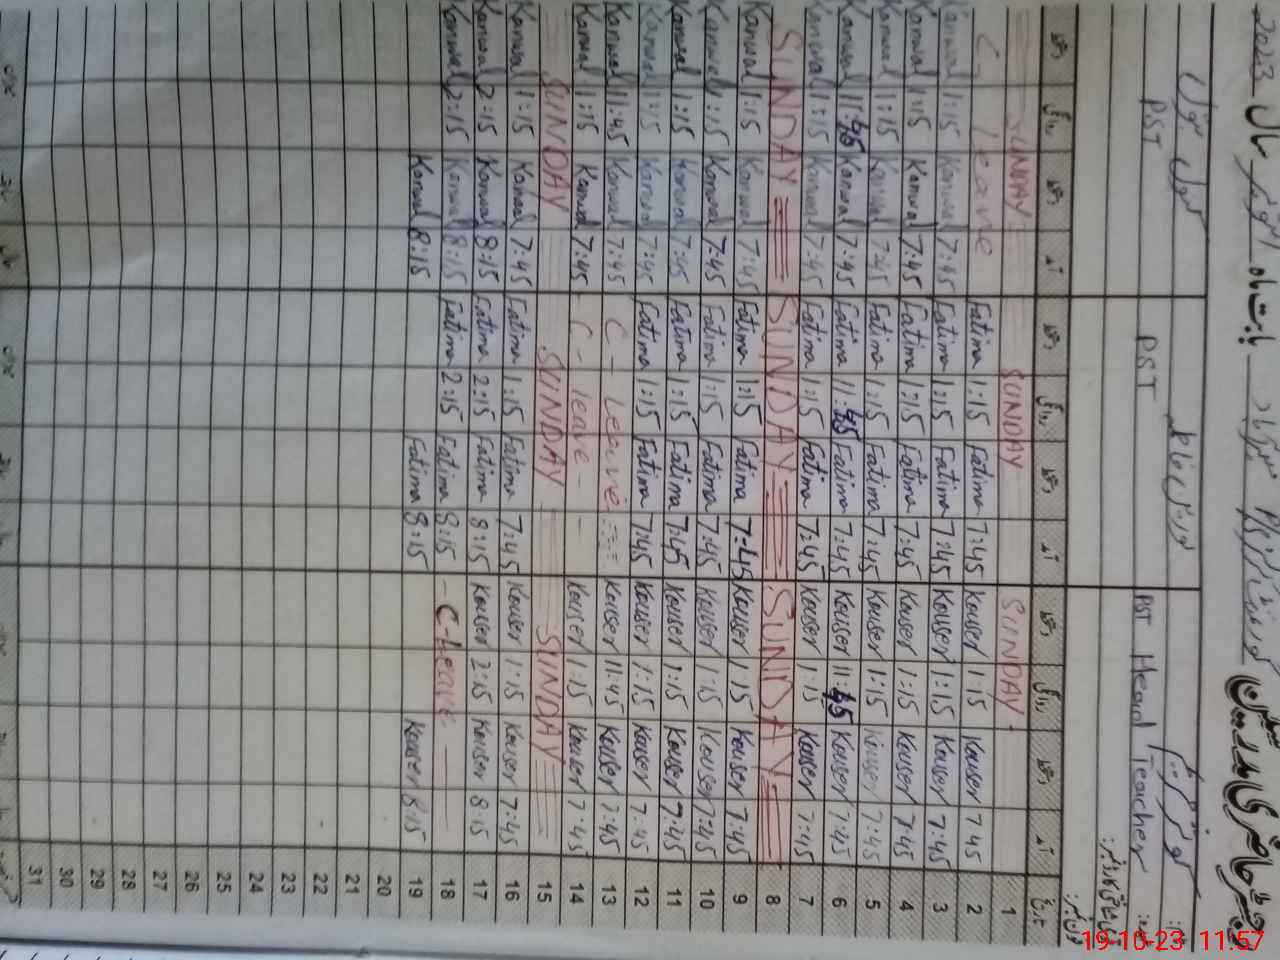 رجسٹر حاضری مدرسین
2023
کوثر پروین
PST PST PST Head Teacher
دستخط روانگی دستخط آمد دستخط روانگی دستخط آمد دستخط روانگی دستخط آمد تاریخ
SUNDAY SUNDAY SUNDAY 1
C - Leave Fatima 1:15 Fatima 7:45 Kouser 1:15 Kouser 7:45 2
Kanwal 1:15 Kanwal 7:45 Fatima 1:15 Fatima 7:45 Kouser 1:15 Kouser 7:45 3
Kanwal 1:15 Kanwal 7:45 Fatima 1:15 Fatima 7:45 Kouser 1:15 Kouser 7:45 4
Kanwal 1:15 Kanwal 7:45 Fatima 1:15 Fatima 7:45 Kouser 1:15 Kouser 7:45 5
Kanwal 11:45 Kanwal 7:45 Fatima 11:45 Fatima 7:45 Kouser 11:45 Kouser 7:45 6
Kanwal 1:15 Kanwal 7:45 Fatima 1:15 Fatima 7:45 Kouser 1:15 Kouser 7:45 7
SUNDAY SUNDAY SUNDAY 8
Kanwal 1:15 Kanwal 7:45 Fatima 1:15 Fatima 7:45 Kouser 1:15 Kouser 7:45 9
Kanwal 1:15 Kanwal 7:45 Fatima 1:15 Fatima 7:45 Kouser 1:15 Kouser 7:45 10
Kanwal 1:15 Kanwal 7:45 Fatima 1:15 Fatima 7:45 Kouser 1:15 Kouser 7:45 11
Kanwal 1:15 Kanwal 7:45 Fatima 1:15 Fatima 7:45 Kouser 1:15 Kouser 7:45 12
Kanwal 11:45 Kanwal 7:45 C - Leave Kouser 11:45 Kouser 7:45 13
Kanwal 1:15 Kanwal 7:45 C - leave - Kouser 1:15 Kouser 7:45 14
SUNDAY SUNDAY SUNDAY 15
Kanwal 1:15 Kanwal 7:45 Fatima 1:15 Fatima 7:45 Kouser 1:15 Kouser 7:45 16
Kanwal 2:15 Kanwal 8:15 Fatima 2:15 Fatima 8:15 Kouser 2:15 Kouser 8:15 17
Kanwal 2:15 Kanwal 8:15 Fatima 2:15 Fatima 8:15 - C-Leave 18
Kanwal 8:15 Fatima 8:15 Kouser 8:15 19
20
21
22
23
24
25
26
27
28
29
30
31
19-10-23 11:57